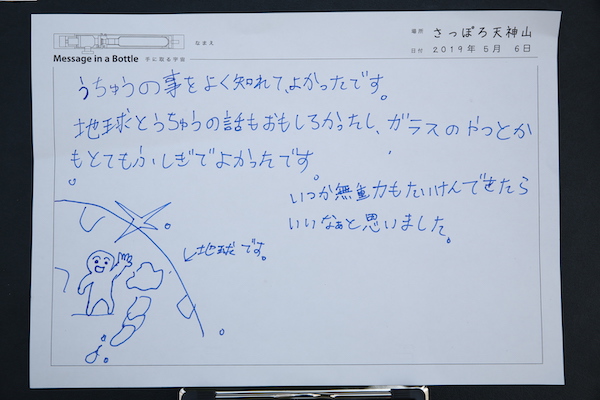 なまえ
場所 さっぽろ天神山
Message in a Bottle 手に取る宇宙
日付 2019年5月6日
うちゅうの事をよく知れて、よかったです。
地球とうちゅうの話もおもしろかったし、ガラスのやつとか
もとてもふしぎでよかったです。
いつか無重力もたいけんできたら
いいなぁと思いました。
地球です。